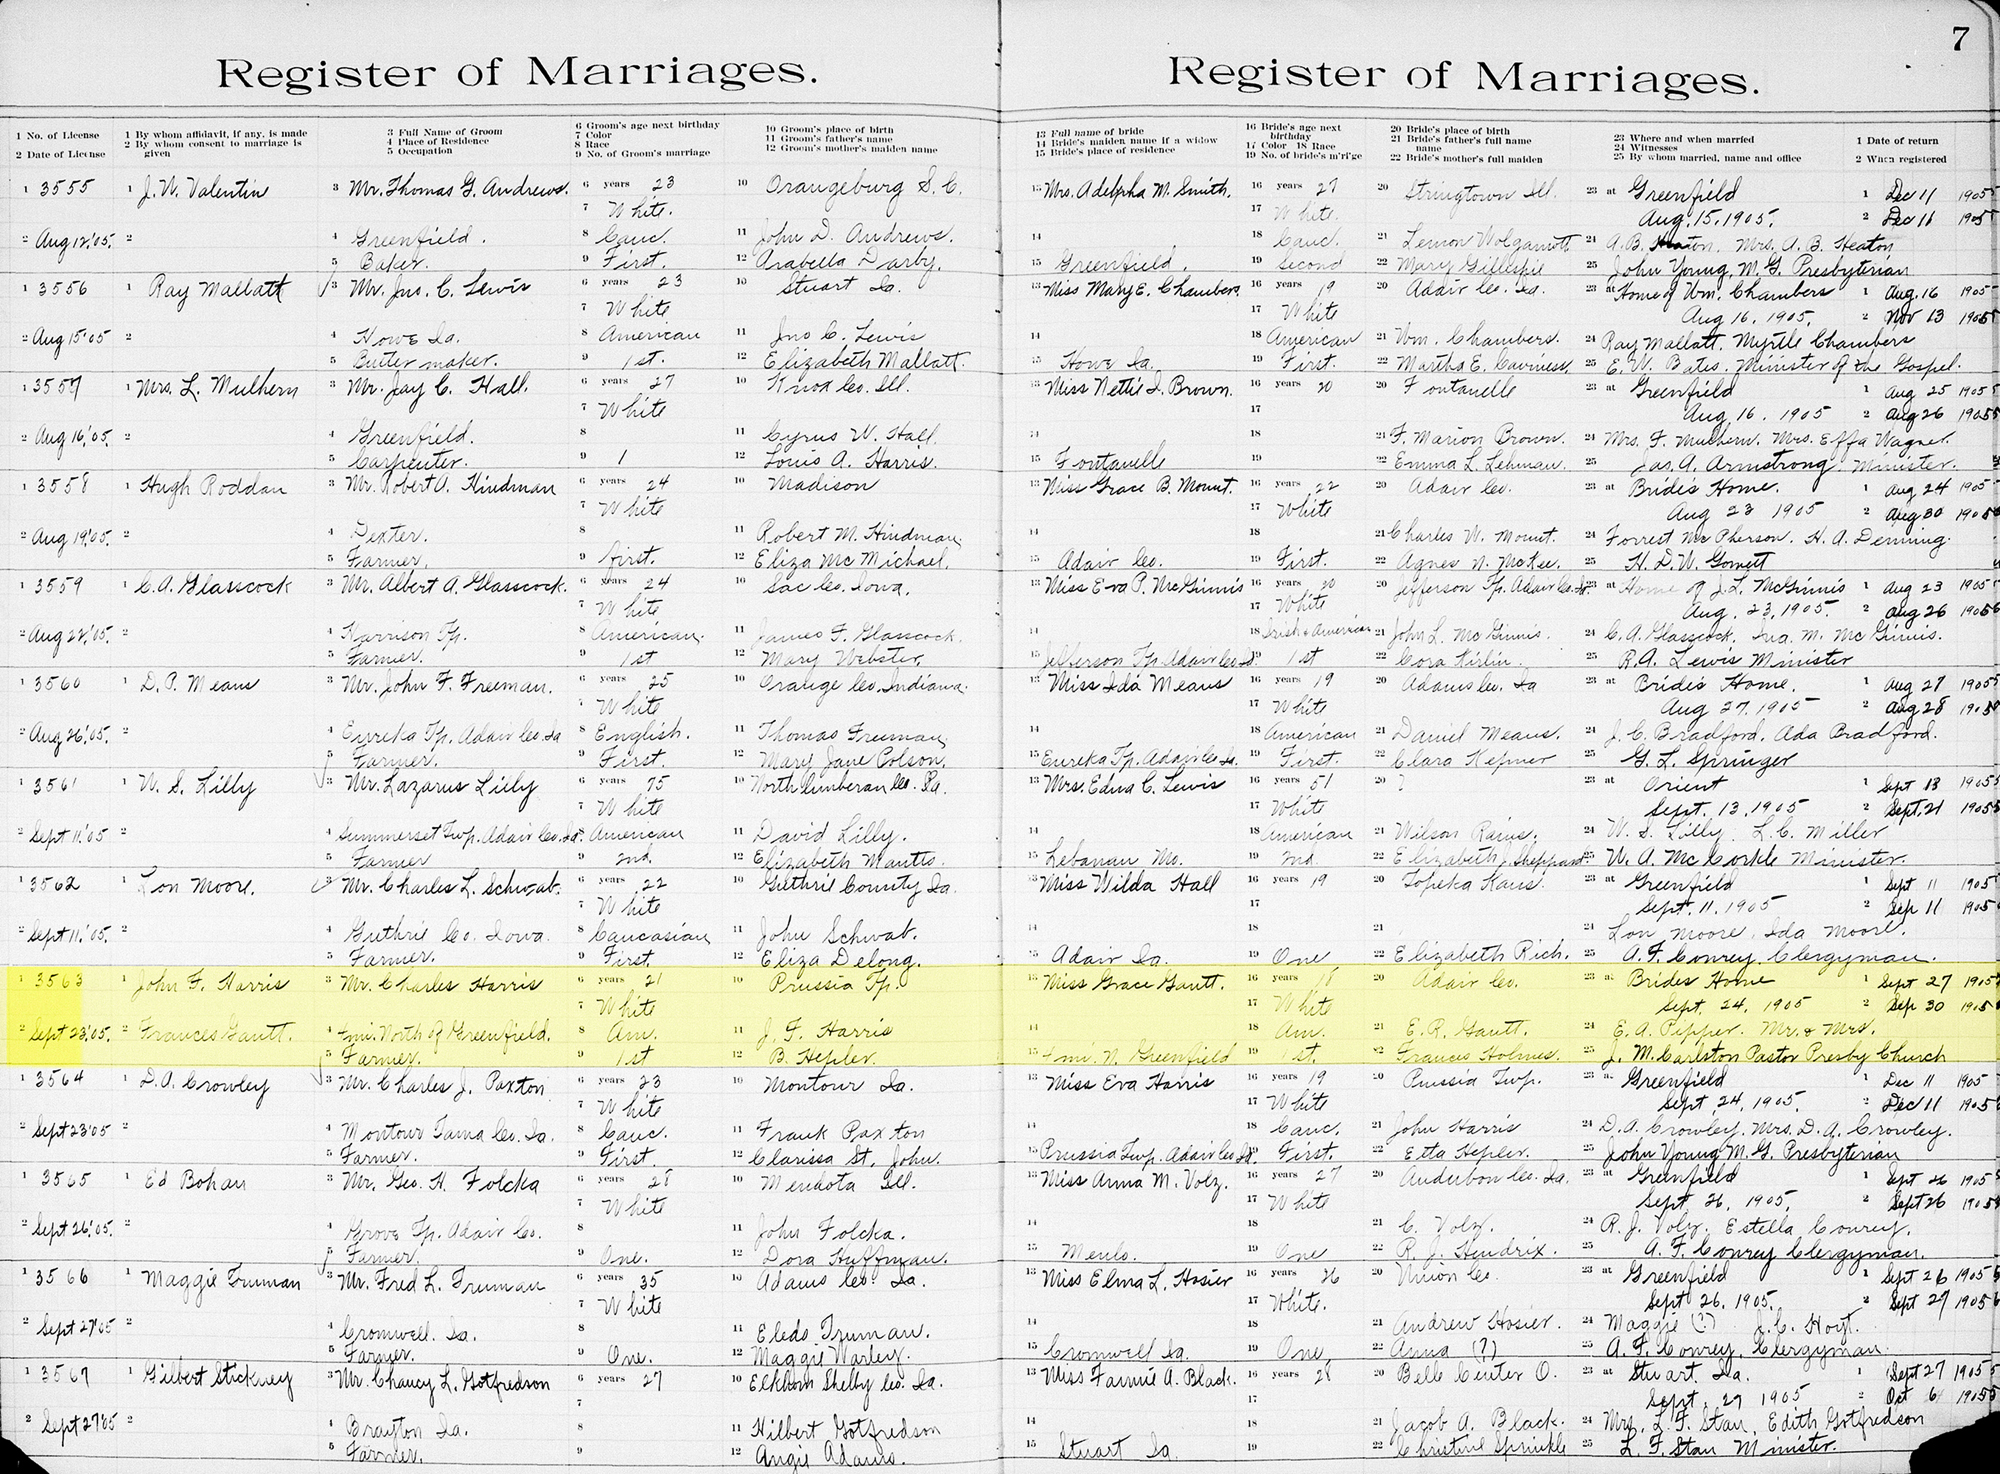 7
Register of Marriages. Register of Marriages.
1 No. of License
2 Date of License
1 By whom affidavit, if any, is made
2 By whom consent to marriage is given
3 Full Name of Groom
4 Place of Residence
5 Occupation
6 Groom's age next birthday
7 Color
8 Race
9 No. of Groom's marriage
10 Groom's place of birth
11 Groom's father's name
12 Groom's mother's maiden name
13 Full name of bride
14 Bride's maiden name if a widow
15 Bride's place of residence
16 Bride's age next birthday
17 Color 18 Race
19 No. of bride's m'ri'ge
20 Bride's place of birth
21 Bride's father's full name
22 Bride's mother's full maiden
23 Where and when married
24 Witnesses
25 By whom married, name and office
1 Date of return
2 When registered
1 3555 1 J. W. Valentin 3 Mr. Thomas G. Andrews. 6 years 23 10 Orangeburg S. C. 13 Mrs. Adelpha M. Smith. 16 years 27 20 Stringtown Ill. 23 at Greenfield 1 Dec 11 1905
7 White. 17 White. Aug. 15, 1905. 2 Dec 11 1905
2 Aug 12, '05. 2 4 Greenfield. 8 Cauc. 11 John D. Andrews. 14 18 Cauc. 21 Lemon Wolgamott 24 A. B. Heaton, Mrs. A. B. Heaton
5 Baker. 9 First. 12 Arabella Darby. 15 Greenfield. 19 Second 22 Mary Gillespie 25 John Young, M. G. Presbyterian
1 3556 1 Ray Mallatt 3 Mr. Jno. C. Lewis 6 years 23 10 Stuart Ia. 13 Miss Mary E. Chambers. 16 years 19 20 Adair Co. Ia. 23 at Home of Wm. Chambers 1 Aug. 16 1905
7 White 17 White Aug 16, 1905. 2 Nov 13 1905
2 Aug 15 '05 2 4 Howe Ia. 8 American 11 Jno C. Lewis 14 18 American 21 Wm. Chambers. 24 Ray Mallatt. Myrtle Chambers
5 Butter maker. 9 1st. 12 Elizabeth Mallatt. 15 Howe Ia. 19 First. 22 Martha E. Caviness. 25 E. W. Bates. Minister of the Gospel.
1 3557 1 Mrs. L. Mulhern 3 Mr. Jay C. Hall. 6 years 27 10 Knox Co. Ill. 13 Miss Nettie I. Brown. 16 years 20 20 Fontanelle 23 at Greenfield 1 Aug 25 1905
7 White 17 Aug 16. 1905 2 Aug 26 1905
2 Aug 16, '05. 2 4 Greenfield. 8 11 Cyrus W. Hall. 14 18 21 F. Marion Brown. 24 Mrs. F. Mulhern. Mrs. Effa Wagner.
5 Carpenter. 9 1 12 Louis A. Harris. 15 Fontanelle 19 22 Emma L. Lehman. 25 Jas. A. Armstrong Minister.
1 3558 1 Hugh Roddan 3 Mr. Robert A. Hindman 6 years 24 10 Madison 13 Miss Grace B. Mount. 16 years 22 20 Adair Co. 23 at Bride's Home. 1 Aug 24 1905
7 White 17 White Aug 23 1905 2 Aug 30 1905
2 Aug 19, '05. 2 4 Dexter. 8 11 Robert M. Hindman. 14 18 21 Charles W. Mount. 24 Forrest McPherson. H. A. Deming.
5 Farmer. 9 First. 12 Eliza McMichael. 15 Adair Co. 19 First. 22 Agnes N. McKee. 25 H. D. W.
1 3559 1 C. A. Glasscock 3 Mr. Albert A. Glasscock. 6 years 24 10 Sac Co. Iowa. 13 Miss Eva P. McGinnis 16 years 20 20 Jefferson Tp. Adair Co. Ia. 23 at Home of J. L. McGinnis 1 Aug 23 1905
7 White 17 White Aug. 23, 1905. 2 Aug 26 1905
2 Aug 22, '05. 2 4 Harrison Tp. 8 American. 11 James F. Glasscock. 14 18 Irish & American 21 John L. McGinnis. 24 C. A. Glasscock. M. McGinnis.
5 Farmer. 9 1st 12 Mary Webster. 15 Jefferson Tp. Adair Co. Ia. 19 1st 22 Cora Kirlin. 25 R. A. Lewis Minister
1 3560 1 D. P. Means 3 Mr. John F. Freeman. 6 years 25 10 Orange Co. Indiana. 13 Miss Ida Means 16 years 19 20 Adams Co. Ia 23 at Bride's Home. 1 Aug 27 1905
7 White 17 White Aug 27, 1905 2 Aug 28 1905
2 Aug 26, '05. 2 4 Eureka Tp. Adair Co. Ia 8 English. 11 Thomas Freeman. 14 18 American 21 Daniel Means. 24 J. C. Bradford. Ada Bradford.
5 Farmer. 9 First. 12 Mary Jane Colson. 15 Eureka Tp. Adair Co. Ia. 19 First. 22 Clara Hepner 25 G. L. Springer
1 3561 1 W. S. Lilly 3 Mr. Lazarus Lilly 6 years 75 10 Northumberan Co. Pa. 13 Mrs. Edna C. Lewis 16 years 51 20 ? 23 at Orient 1 Sept 13 1905
7 White 17 White Sept. 13, 1905 2 Sept. 21 1905
2 Sept 11, '05 2 4 Summerset Twp. Adair Co. Ia. 8 American 11 David Lilly. 14 18 American 21 Wilson Rains. 24 W. S. Lilly L. C. Miller
5 Farmer 9 2nd. 12 Elizabeth Mantts. 15 Lebanan Mo. 19 2nd. 22 Elizabeth Sheppard 25 W. A. McCorkle Minister.
1 3562 1 Lon Moore. 3 Mr. Charles L. Schwab. 6 years 22 10 Guthrie County Ia. 13 Miss Wilda Hall 16 years 19 20 Topeka Kans. 23 at Greenfield 1 Sept 11 1905
7 White 17 Sept. 11, 1905 2 Sep 11 1905
2 Sept 11, '05. 2 4 Guthrie Co. Iowa. 8 Caucasian 11 John Schwab. 14 18 21 24 Lon Moore. Ida Moore.
5 Farmer. 9 First. 12 Eliza Delong. 15 Adair Ia. 19 One 22 Elizabeth Rich. 25 A. F. Conrey. Clergyman.
1 3563 1 John F. Harris 3 Mr. Charles Harris 6 years 21 10 Prussia Tp. 13 Miss Grace Gantt. 16 years 18 20 Adair Co. 23 at Brides Home 1 Sept 27 1905
7 White 17 White Sept. 24, 1905 2 Sep 30 1905
2 Sept 23, '05. 2 Frances Gantt. 4 mi. North of Greenfield. 8 Am. 11 J. F. Harris 14 18 Am. 21 E. R. Gantt. 24 E. A. Pepper. Mr. & Mrs.
5 Farmer. 9 1st 12 B. Hepler. 15 mi. N. Greenfield 19 1st. 22 Frances Holmes. 25 J. M. Carlston Pastor Presby Church
1 3564 1 D. A. Crowley 3 Mr. Charles J. Paxton 6 years 23 10 Montour Ia. 13 Miss Eva Harris 16 years 19 20 Prussia Twp. 23 at Greenfield 1 Dec 11 1905
7 White 17 White Sept 24, 1905. 2 Dec 11 1905
2 Sept 23 '05 2 4 Montour Tama Co. Ia. 8 Cauc. 11 Frank Paxton 14 18 Cauc. 21 John Harris 24 D. A. Crowley. Mrs. D. A. Crowley.
5 Farmer. 9 First. 12 Clarissa St. John. 15 Prussia Twp. Adair Co. Ia. 19 First. 22 Etta Hepler. 25 John Young M. G. Presbyterian
1 3565 1 Ed Bohan 3 Mr. Geo. H. Folcka 6 years 28 10 Mendota Ill. 13 Miss Anna M. Volz. 16 years 27 20 Audubon Co. Ia. 23 at Greenfield 1 Sept 26 1905
7 White 17 White Sept. 26, 1905. 2 Sept 26 1905
2 Sept 26, '05. 2 4 Grove Tp. Adair Co. 8 11 John Folcka. 14 18 21 C. Volz. 24 R. J. Volz. Estella Conrey.
5 Farmer. 9 One. 12 Dora Huffman. 15 Menlo. 19 One 22 R. J. Hendrix. 25 A. F. Conrey Clergyman.
1 3566 1 Maggie Truman 3 Mr. Fred L. Truman 6 years 35 10 Adams Co. Ia. 13 Miss Elma L. Hosier 16 years 26 20 Union Co. 23 at Greenfield 1 Sept 26 1905
7 White 17 White. Sept 26, 1905. 2 Sept 27 1905
2 Sept 27 '05 2 4 Cromwell. Ia. 8 11 Eledo Truman. 14 18 21 Andrew Hosier. 24 Maggie (?) J. C. Hoyt.
5 Farmer. 9 One. 12 Maggie Warley. 15 Cromwell Ia. 19 One. 22 Anna (?) 25 A. F. Conrey. Clergyman.
1 3567 1 Gilbert Stickney 3 Mr. Chancy L. Gotfredson 6 years 27 10 Elkhorn Shelby Co. Ia. 13 Miss Fannie A. Black. 16 years 28 20 Belle Center O. 23 at Stuart. Ia. 1 Sept 27 1905
7 17 Sept. 27 1905 2 Oct 6 1905
2 Sept 27 '05 2 4 Brayton Ia. 8 11 Hilbert Gotfredson 14 18 21 Jacob A. Black. 24 Mrs. L. F. Stan. Edith Gotfredson
5 Farmer. 9 12 Angie Adams. 15 Stuart Ia. 19 22 Christine Sprinkle 25 L. F. Stan Minister.